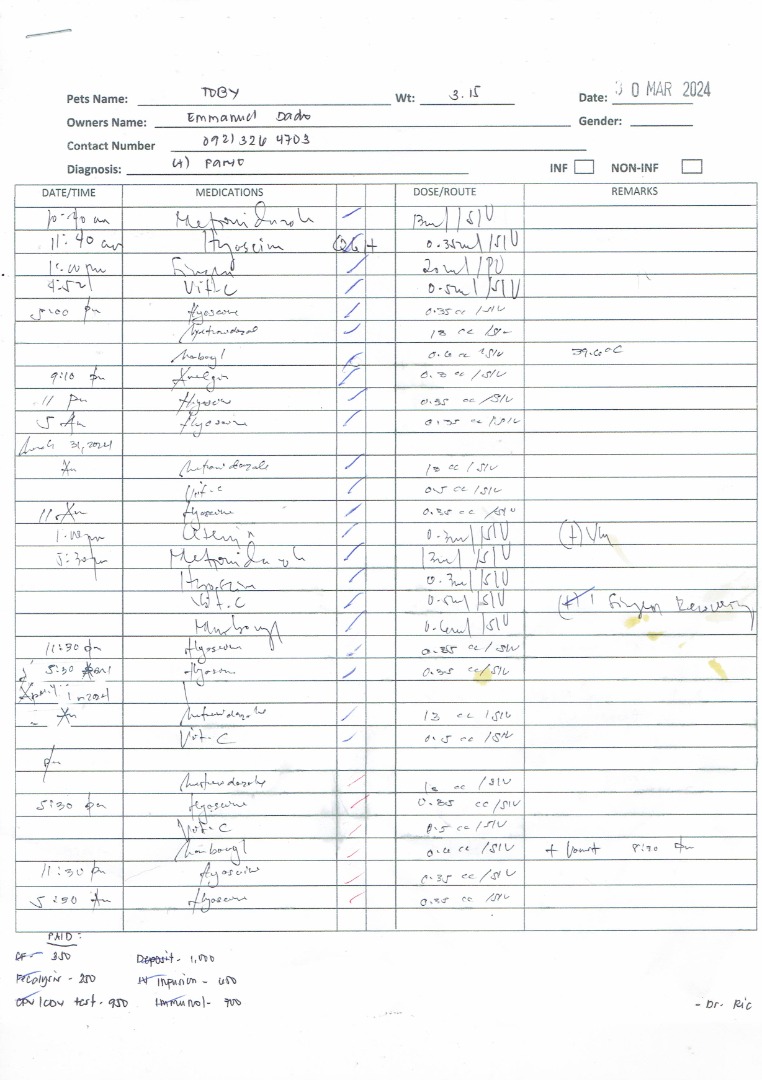 Pets Name: TOBY Wt: 3.15 Date: 30 MAR 2024
Owners Name: Emmanuel Dado Gender:
Contact Number 0921 326 4703
Diagnosis: (+) Parvo INF NON-INF
DATE/TIME MEDICATIONS DOSE/ROUTE REMARKS
10:40 am Metronidazole 13ml/SIV
11:40 am Hyoscine Q6H 0.35ml/SIV
20ml/PO
Vit-C 0.5ml/SIV
5:00 pm Hyoscine 0.35 cc/SIV
Metronidazole 13 cc
cc/SIV 39.6°C
9:10 pm cc/SIV
11 pm Hyoscine 0.35 cc/SIV
5 Am Hyoscine 0.35 cc/SIV
March 31, 2024
Metronidazole 13 cc/SIV
Vit-C 0.5 cc/SIV
11 Am Hyoscine 0.35 cc/SIV
1:00 pm 0.3ml/SIV
5:30 pm Metronidazole 13ml/SIV
Hyoscine 0.3ml/SIV
Vit-C 0.5ml/SIV Recovery
SIV
11:30 pm Hyoscine 0.35 cc/SIV
5:30 Hyoscine 0.35 cc/SIV
April 1
Am Metronidazole 13 cc/SIV
Vit-C 0.5 cc/SIV
pm
Metronidazole cc/SIV
5:30 pm Hyoscine 0.35 cc/SIV
Vit-C 0.5 cc/SIV
cc/SIV + Vomit 8:30 pm
11:30 pm Hyoscine 0.35 cc/SIV
5:30 Am Hyoscine 0.35 cc/SIV
PAID:
CF - 350 Deposit - 1,000
Fecalysis - 250 IV Infusion - 600
CPV/CDV test - 950 Immunol - 900
- Dr. Ric